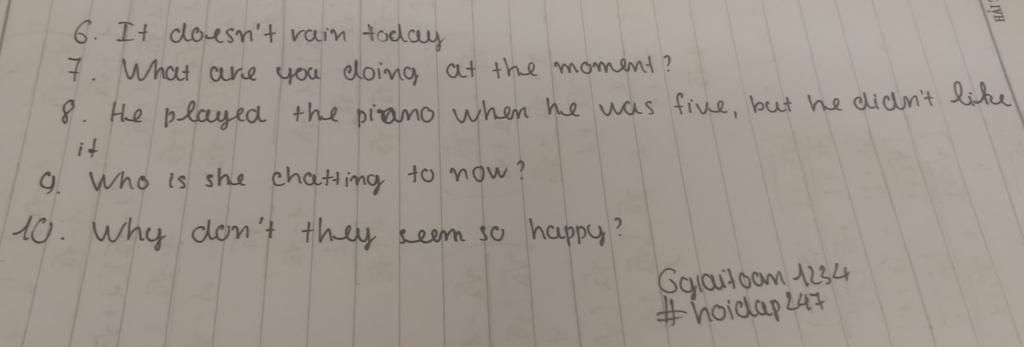 6. It doesn't rain today
7. What are you doing at the moment?
8. He played the piano when he was five, but he didn't like
it
9. Who is she chatting to now?
10. Why don't they seem so happy?
Ggiaitoan1234
#hoidap247